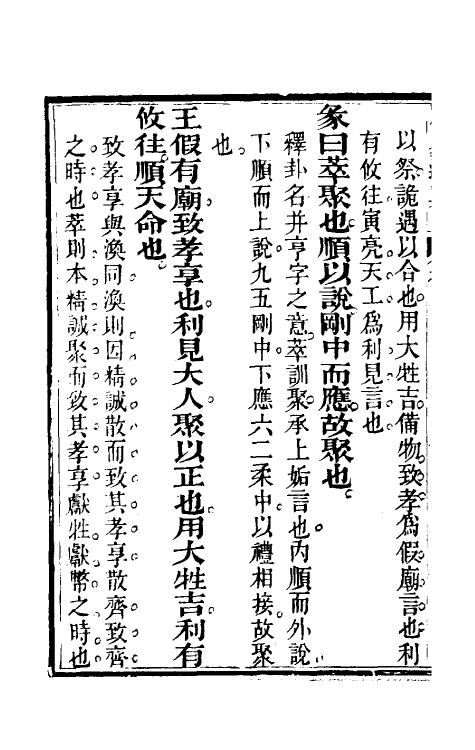 以祭詭遇以合也用大牲吉備物致孝爲假廟言也利
有攸往寅亮天工爲利見言也
彖曰萃聚也順以說剛中而應故聚也
釋卦名并亨字之意萃訓聚承上姤言也內順而外說
下順而上說九五剛中下應六二柔中以禮相接故聚
也
王假有廟致孝享也利見大人聚以正也用大牲吉利有
攸往順天命也
致孝享與渙同渙則因精誠散而致其孝享散齊致齊
之時也萃則本精誠聚而致其孝享獻牲獻幣之時也